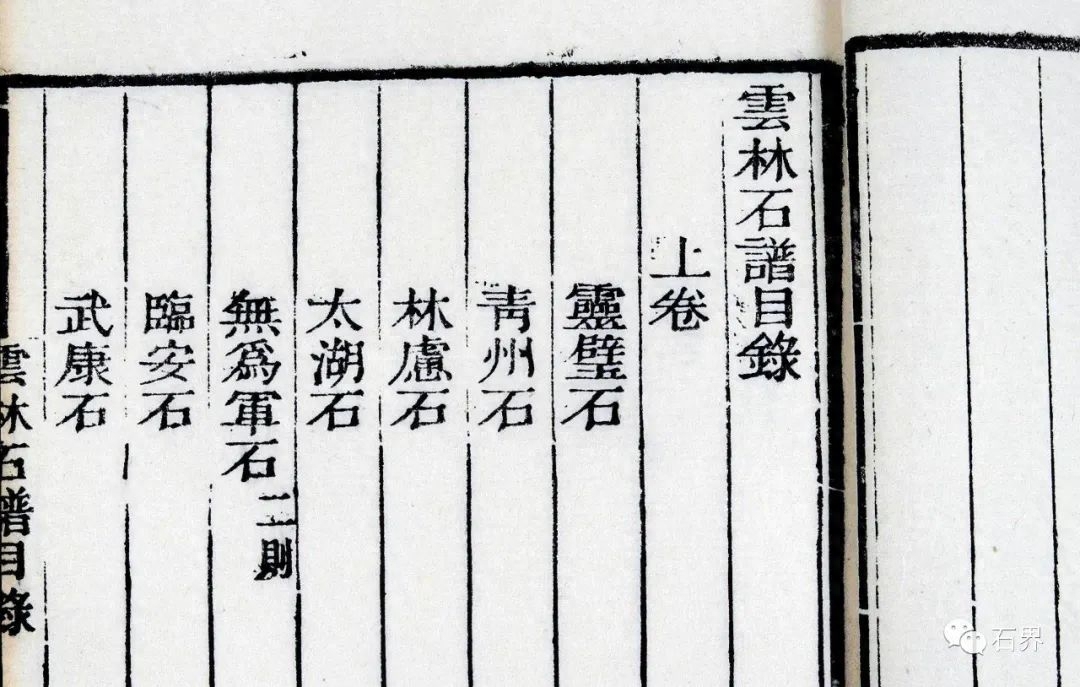 雲林石譜目錄
上卷
靈璧石
青州石
林慮石
太湖石
無爲軍石 二則
臨安石
武康石
雲林石譜目錄
石界